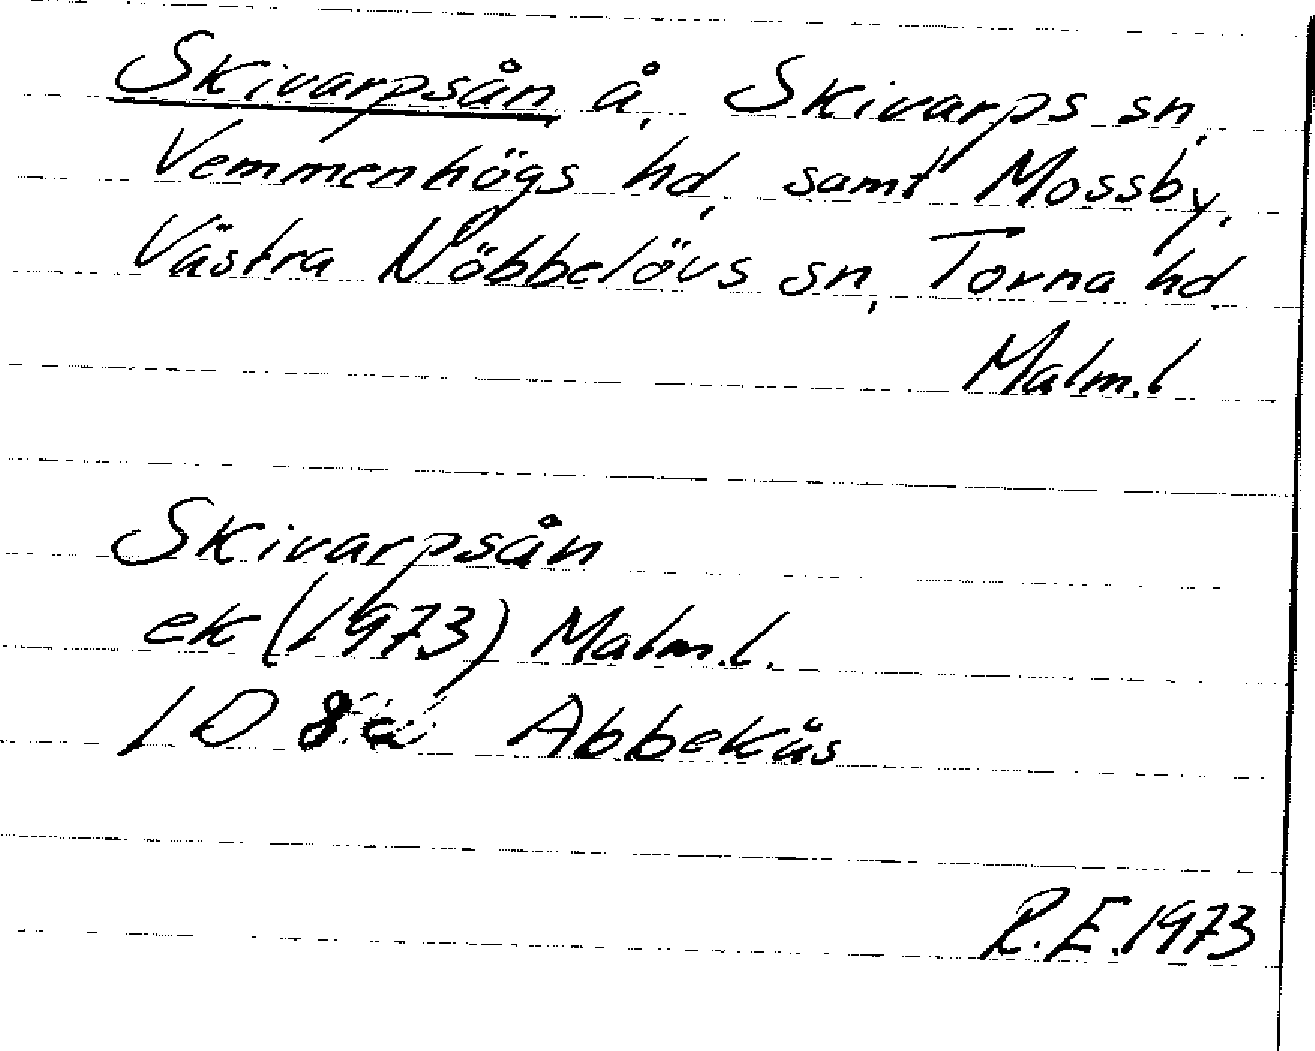 Skivarpsån, å, Skivarps sn,
Vemmenhögs hd, samt Mossby,
Västra Nöbbelövs sn, Torna hd,
Malm.l
Skivarpsån
ek (1973) Malm.l.
1 D Abbekås
R.E.1973